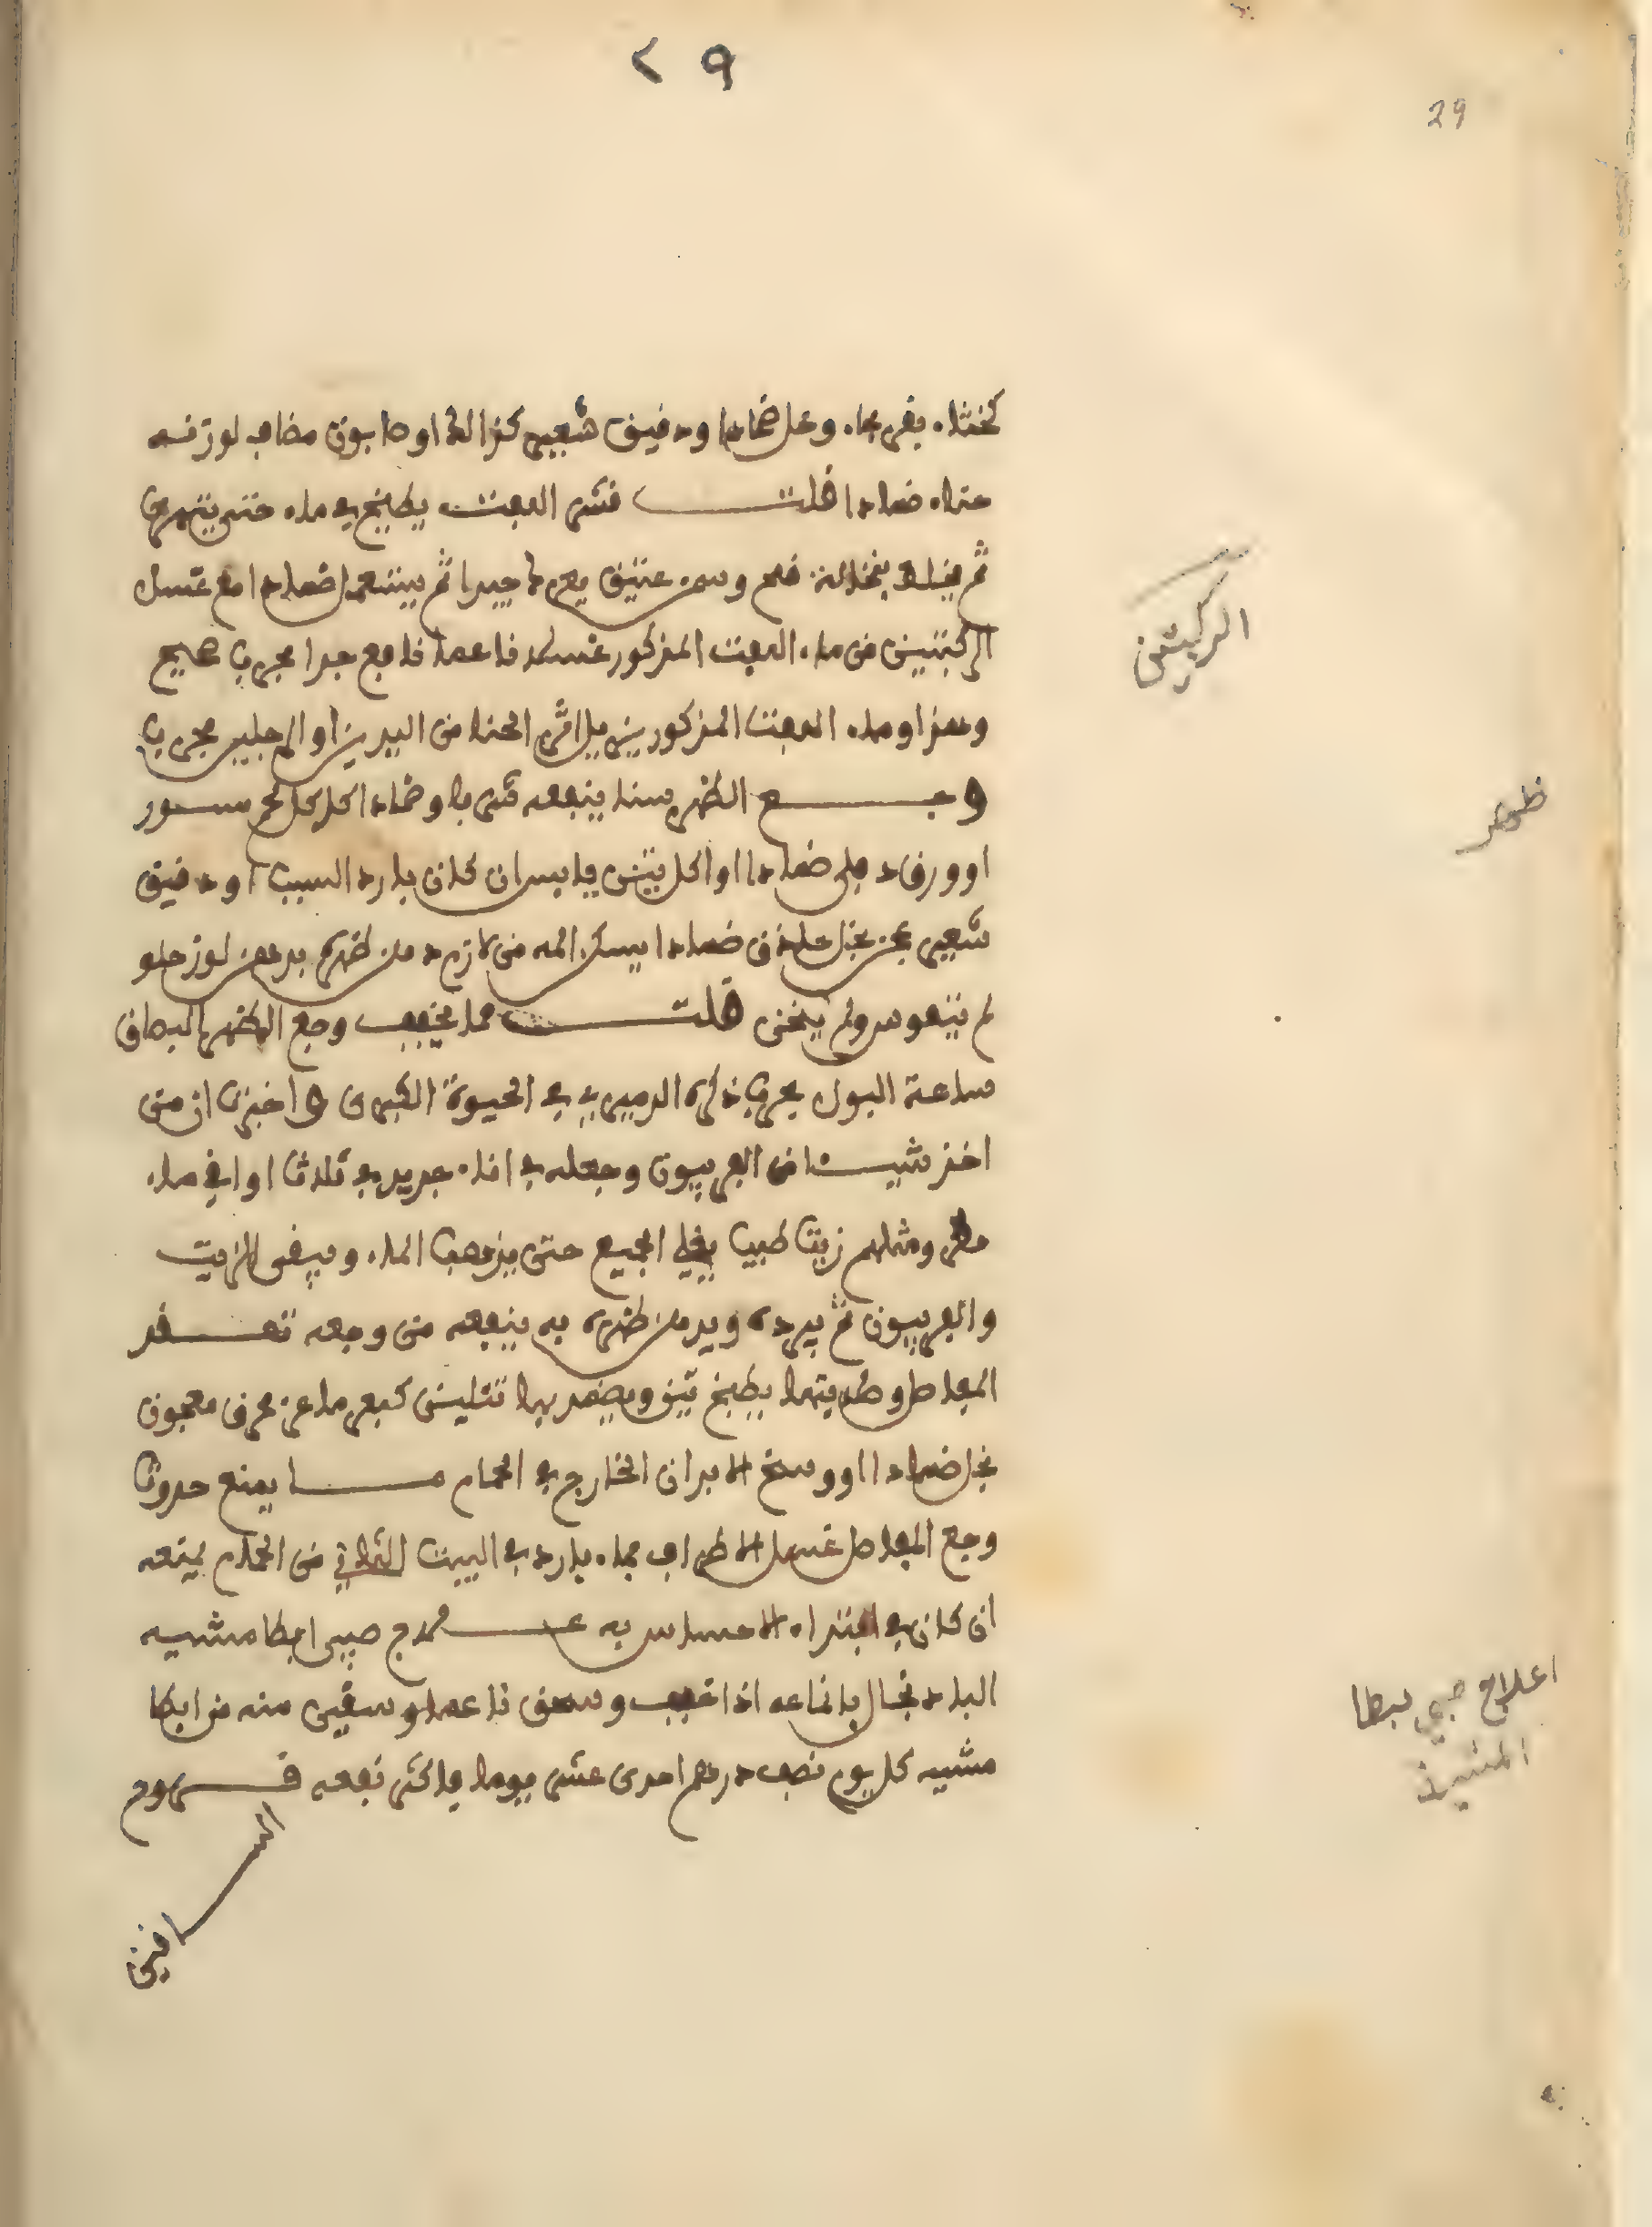 ٢٩
29
كخثاء بقر بماء وخل ضمادا ودقيق شعير كذالك او صابون مضاف لوزنه
حناء ضمادا قلت قشر اللفت يطبخ في ماء حتى يتهرى
ثم يخلط بنخالة قمح وسمن عتيق يعرك جيدا ثم يستعمل ضمادا مع غسل
الركبتين من ماء اللفت المذكور غسلا ناعما نافع جدا مجرب صحيح
وهذا وماء اللفت المذكورين يل اثر الحنا من اليدين او الرجلين مجرب
وجع الظهر سنا ينفعه شربا وضمادا كأكل لحم سنور
او ورق دفلى ضمادا او اكل تين يابس ان كان بارد السبب او دقيق
شعير عجن بخل حاذق ضمادا يسكن المه من لازم دهن ظهره بدهن لوز حلو
لم يتقوس ولم ينحن قلت مما يخفف وجع الظهر البصاق
ساعة البول مجرب ذكره الدميري في الحيوة الكبرى واخبرت ان من
اخذ شيئا من الفربيون وجعله في اناء جديد في ثلاث اواقي ماء
مطر ومثلهم زيتا طيبا يغلي الجميع حتى يذهب الماء ويبقى الزيت
والفربيون ثم يبرده ويدهن ظهره به ينفعه من وجعه تعقد
المفاصل وصلابتها يطبخ تين ويضمد بها تلين كبعر ماعز محرق معجون
بخل ضمادا او وسخ الابدان الخارج في الحمام مما يمنع حدوث
وجع المفاصل غسل الاطراف بماء بارد في البيت الثاني من الحمام يمنعه
ان كان في ابتداء الاحساس به علاج صبي ابطا مشيه
الباذنجال باقماعه اذا خفف وسحق ناعما وسقي منه من ابطا
مشيه كل يوم نصف درهم احدى عشر يوما فاكثر نفعه قروح
الساقين
الركبتين
ظهر
اعلاج صبي ببطا
المشين